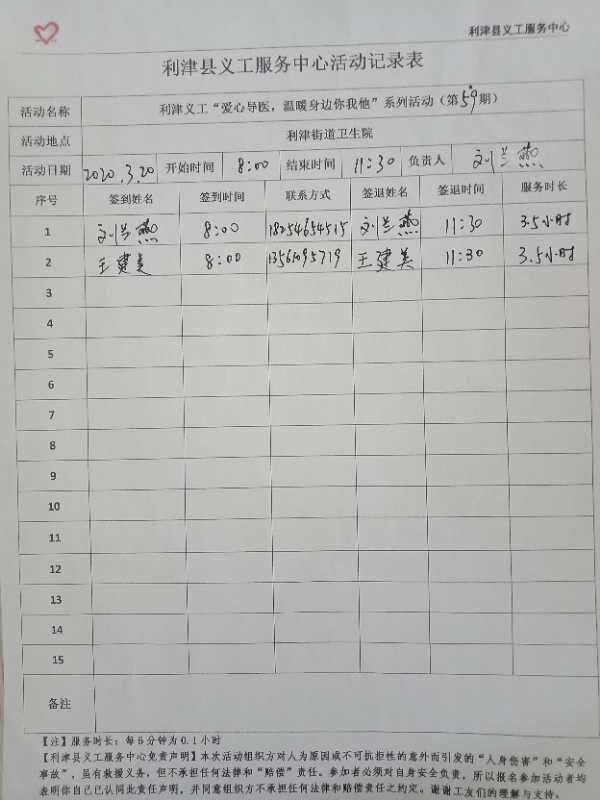 利津县义工服务中心
利津县义工服务中心活动记录表
活动名称 利津义工“爱心导医，温暖身边你我他”系列活动（第59期）
活动地点 利津街道卫生院
活动日期 2020.3.20 开始时间 8:00 结束时间 11:30 负责人 刘兰燕
序号 签到姓名 签到时间 联系方式 签退姓名 签退时间 服务时长
1 刘兰燕 8:00 18254654515 刘兰燕 11:30 3.5小时
2 王建美 8:00 13561095719 王建美 11:30 3.5小时
3
4
5
6
7
8
9
10
11
12
13
14
15
备注
【注】服务时长：每6分钟为0.1小时
【利津县义工服务中心免责声明】本次活动组织方对人为原因或不可抗拒性的意外而引发的“人身伤害”和“安全
事故”，虽有救援义务，但不承担任何法律和“赔偿”责任。参加者必须对自身安全负责。所以报名参加活动者均
表明你自己已认同此责任声明，并同意组织方不承担任何法律和赔偿责任之约定。谢谢工友们的理解与支持。